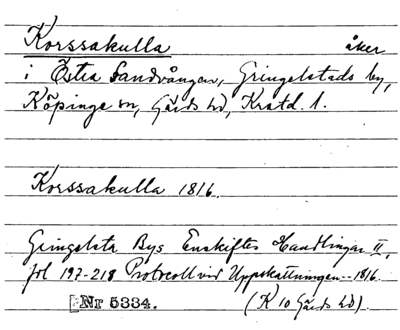 Korssakulla åker
i Östra Sandvången, Gringelstads by,
Köpinge sn, Gärds hd, Krstd. l.
Korssakulla 1816.
Gringelsta Bys Enskiftes Handlingar II,
fol 197-218 Protocoll vid Uppskattningen -- 1816.
Nr 5334. (K 10 Gärds hd).